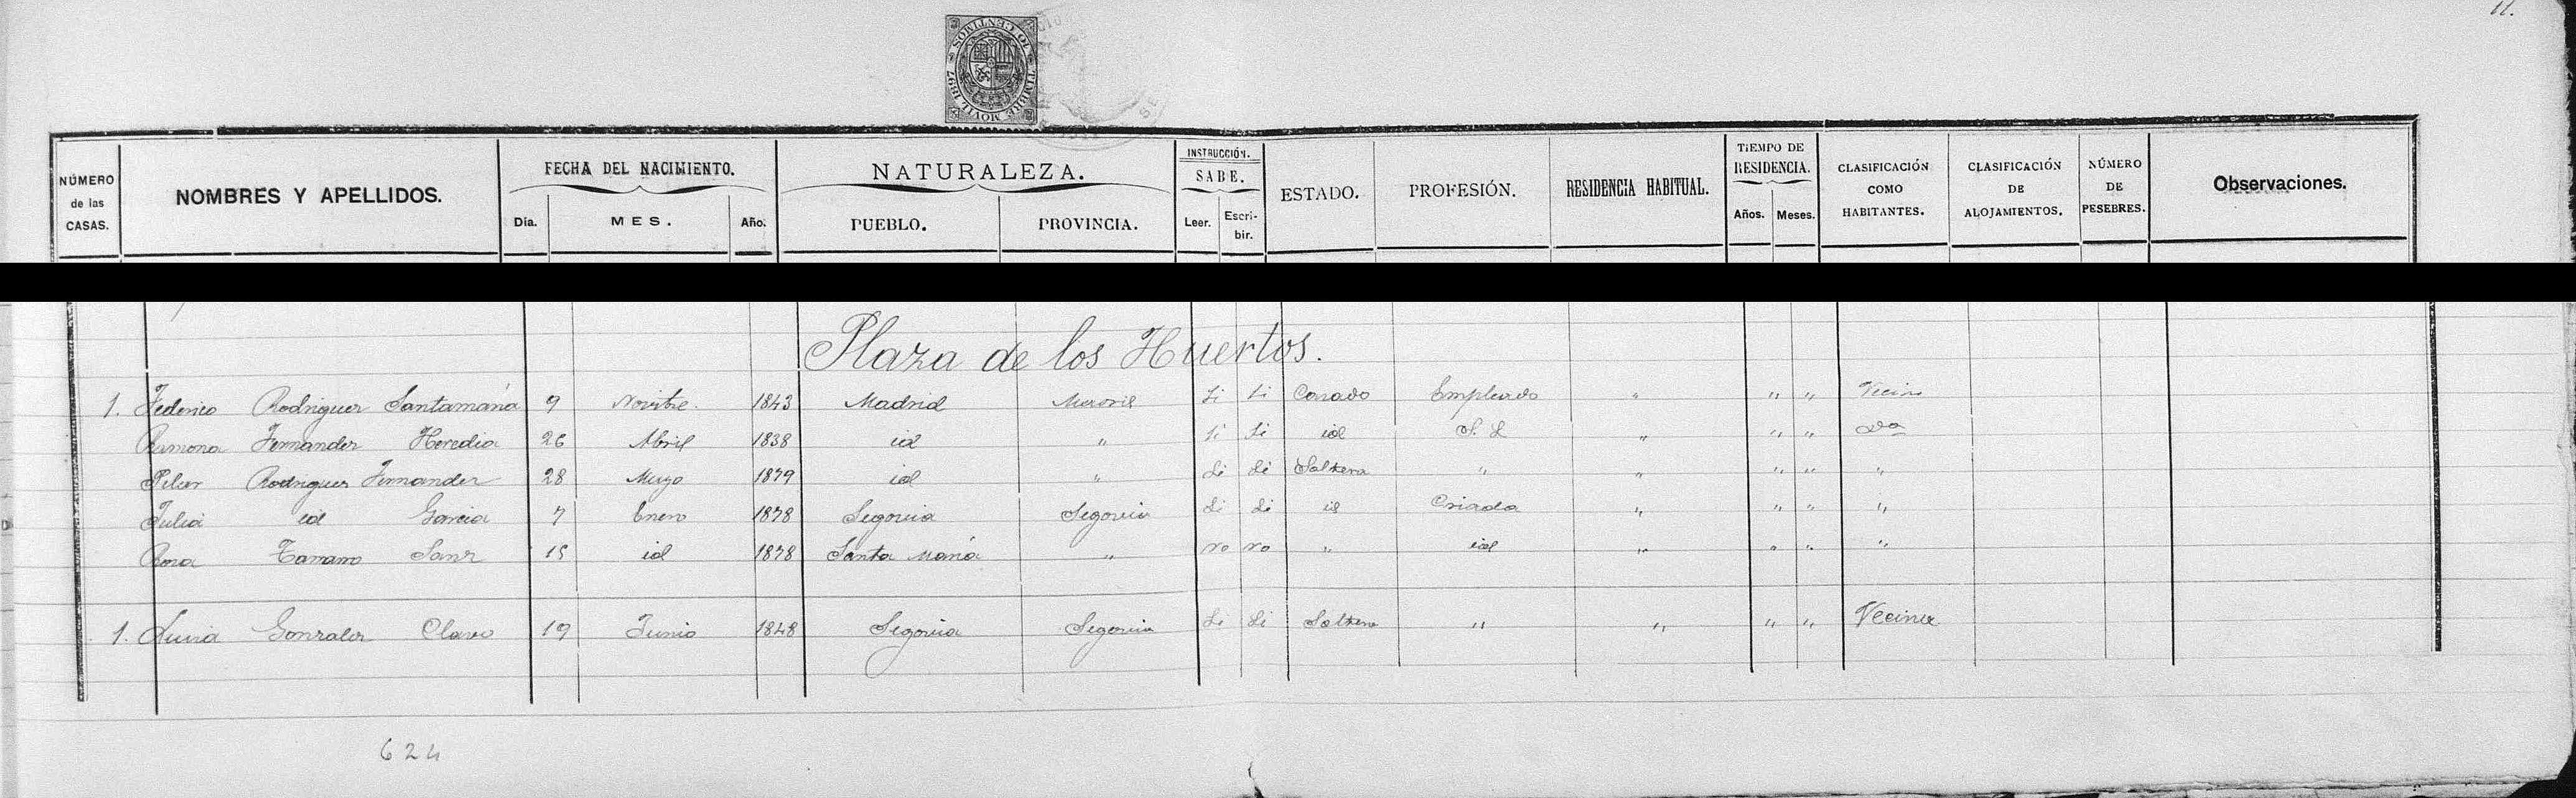 11.
TIMBRE MÓVIL 1897 10 CENTIMOS
NÚMERO de las CASAS. NOMBRES Y APELLIDOS. FECHA DEL NACIMIENTO. Día. MES. Año. NATURALEZA. PUEBLO. PROVINCIA. INSTRUCCIÓN. SABE. Leer. Escribir. ESTADO. PROFESIÓN. RESIDENCIA HABITUAL. TIEMPO DE RESIDENCIA. Años. Meses. CLASIFICACIÓN COMO HABITANTES. CLASIFICACIÓN DE ALOJAMIENTOS. NÚMERO DE PESEBRES. Observaciones.
Plaza de los Huertos.
1. Federico Rodriguez Santamaría 9 Novbre. 1843 Madrid Madrid Si Si Casado Empleado " " " Vecino
Ramona Fernandez Heredia 26 Abril 1838 id " Si Si id S. L " " " Da
Pilar Rodriguez Fernandez 28 Mayo 1879 id " Si Si Soltera " " " " "
Julia id Garcia 7 Enero 1878 Segovia Segovia Si Si id Criada " " " "
Rosa Tamaro Sanz 15 id 1878 Santa María " no no " id " " " "
1. Luisa Gonzalez Clavo 19 Junio 1848 Segovia Segovia Si Si Soltera " " " " Vecina
624